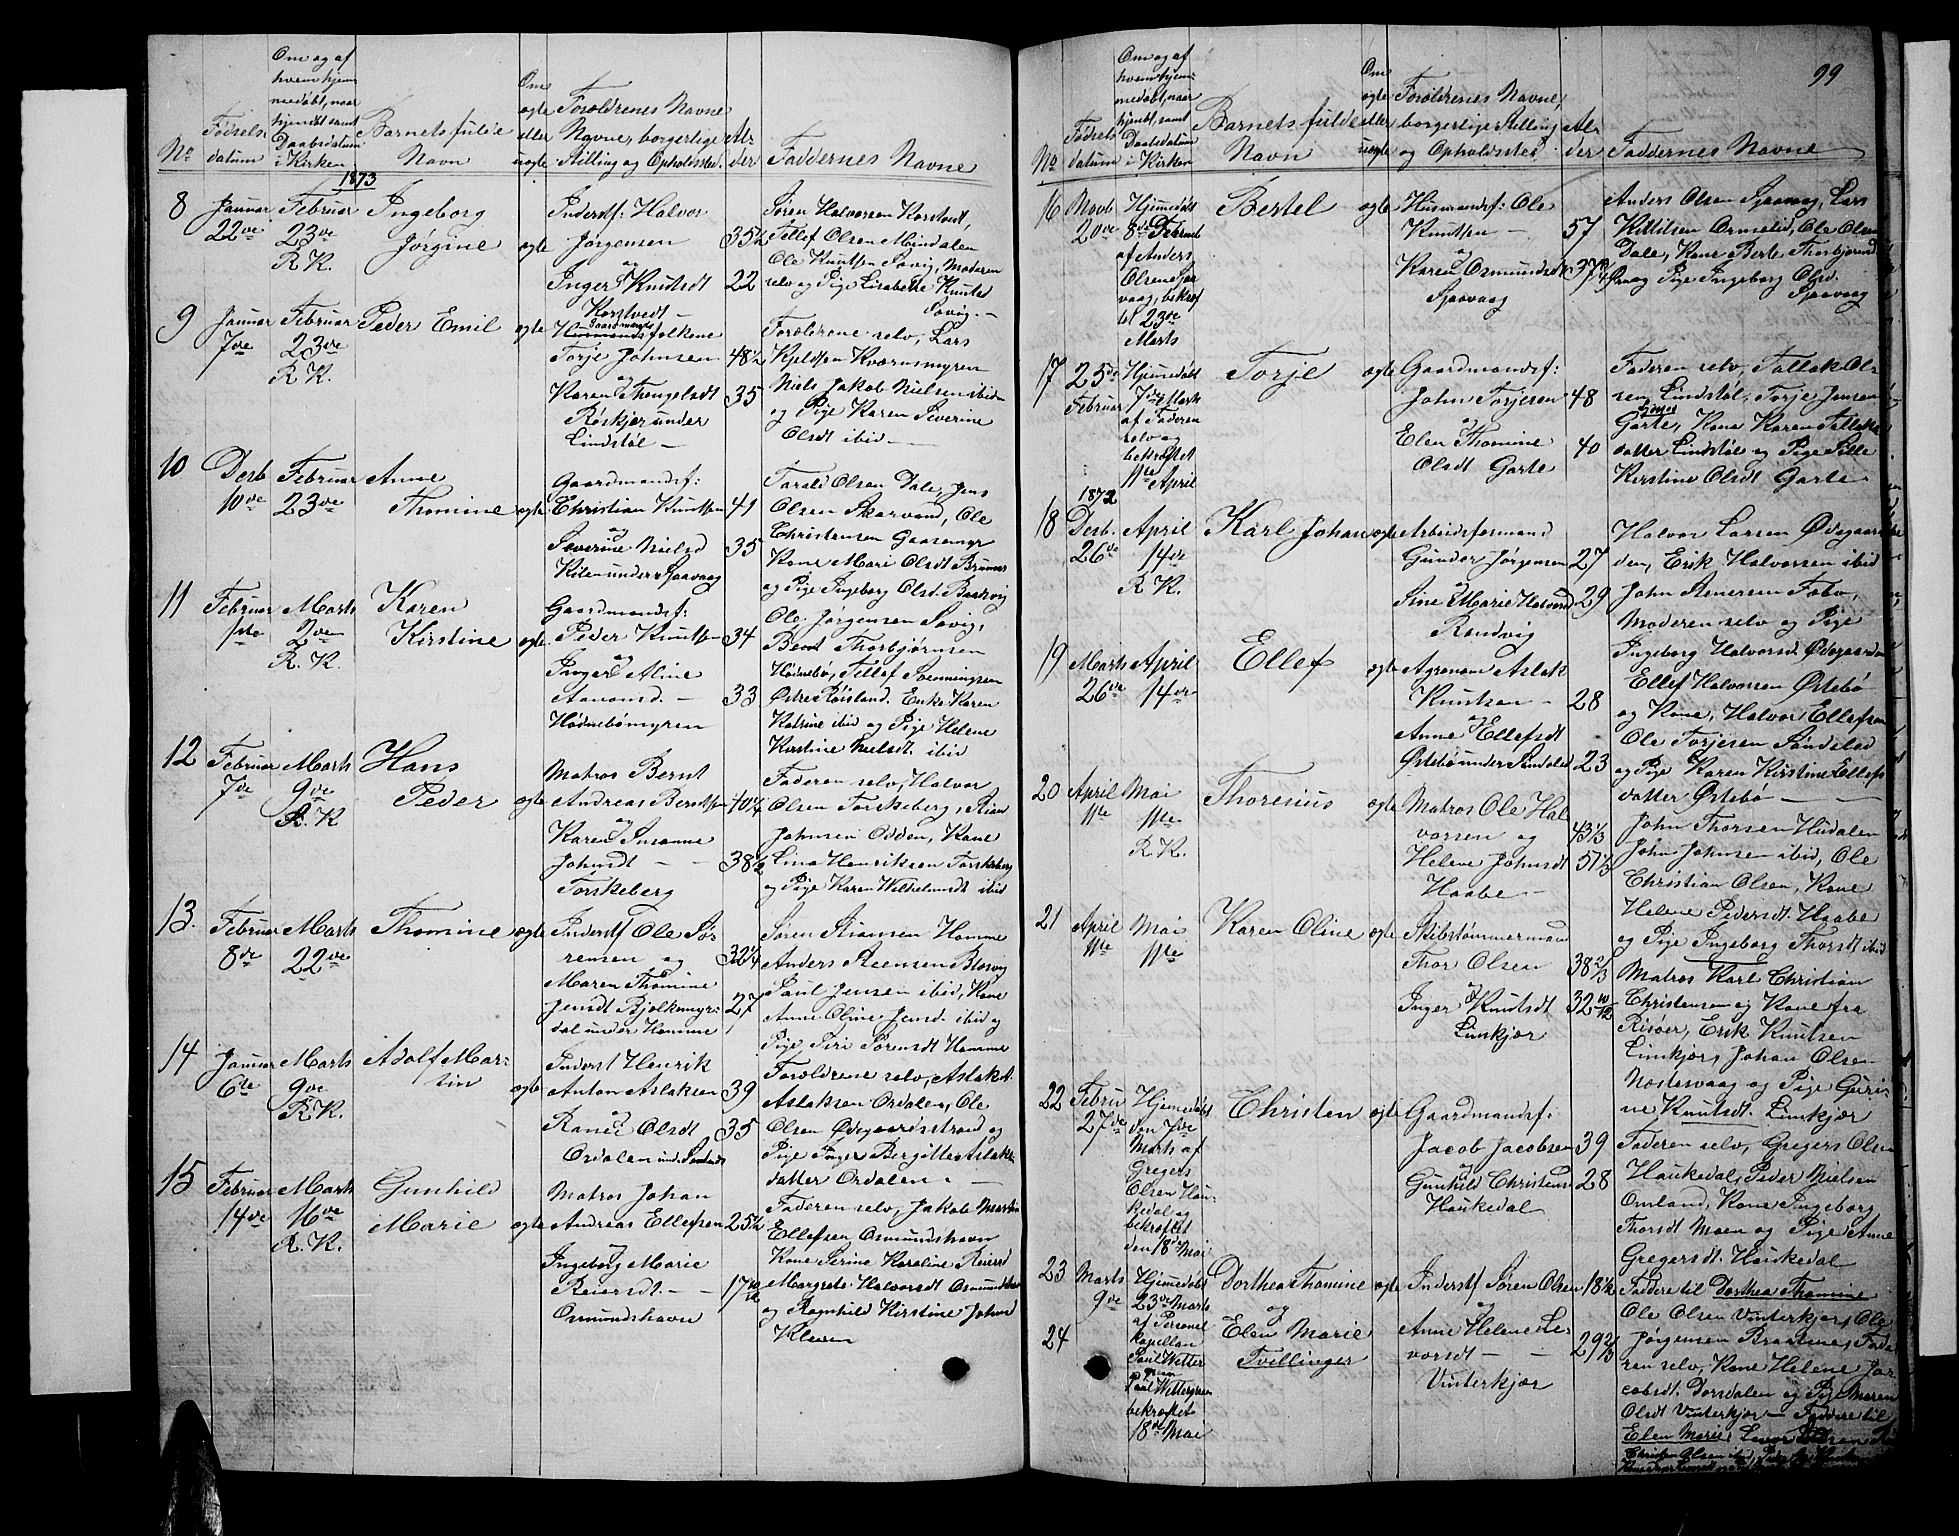 No
Fødsels
datum
Om og af
hvem hjem-
medøbt, naar
samt
Daabsdatum
i Kirken
Barnets fulde
Navn
Om
ægte
eller
uægte
Forældrenes Navne
Navne, borgerlige
Stilling og Opholdssted
Al-
der
Faddernes Navne
1873
8 Januar 22de
Februar 23de R. K.
Ingeborg
Jørgine
ægte
Inderstf: Halvor
Jørgensen 35½
og
Inger Knutsdt 22
Søren Halvorsen
Tellef Olsen Mindalen
Ole Knutsen Savig, Moderen
selv og Pige Lisabethe Knutsd
Savig
9 Januar 7de
Februar 23de R. K.
Peder Emil
ægte
Gaardmands
folkene
Torje Johnsen 48½
og
Karen Thengelsdt 35
Røskjær under
Lindstøl
Forældrene selv, Lars
Kjeldsen Kværnsmyren
Niels Jakob Nielsen ibid
og Pige Karen Severine
Olsdt ibid
10 Desb 10de
Februar 23de
Anne
Thomine
ægte
Gaardmandsf:
Christian Knutsen 41
og
Severine Nielsd 35
Kilen under Sjaavaag
Tarald Olsen Dale, Jens
Olsen Skarvand, Ole
Christensen Gaasemyr
Kone Mari Olsdt
og Pige Ingeborg Olsd.
11 Februar 1ste
Marts 2den R. K.
Karen
Kirstine
ægte
Gaardmandsf:
Peder Knutsen 34
og
Inger Aline
Aanonsd. 33
Hødnebømyren
Ole Jørgensen Savig,
Bent Thorbjørnsen
Hødnebø, Tellef Svenningsen
Østre Røisland, Enke Karen
Katrine ibid og Pige Helene
Kirstine Nielsdt. ibid
12 Februar 7de
Marts 9de R. K.
Hans
Peder
ægte
Matros Bernt
Andreas Berntsen 40¼
og
Karen Susanne
Johnsdt 38½
Torskeberg
Faderen selv, Halvor
Olsen Torskeberg, Stian
Johnsen Odden, Kone
Lina Henriksen Torskeberg
og Pige Karen Wilhelmsdt ibid
13. Februar 8de
Marts 22de
Thomine
ægte
Inderstf Ole Sø-
rensen og 32¼
Maren Thomine
Jensdt Bjelkemyr- 27
dal under Homme
Søren Stiansen Homme
Anders Steensen
Paul Jensen ibid, Kone
Anne Oline Jensd. ibid og
Pige Siri Sørensdt Homme
14 Januar 6te
Marts 9de R. K.
Adolf Mar-
tin
ægte
Inderst Henrik
Anton Aslaksen 39
og
Olsdt 35
Ordalen
Forældrene selv, Aslak
Aslaksen Ordalen, Ole
Olsen Ødegaardsstrand og
Pige Inger Bergitte Aslaks
datter Ordalen
15 Februar 14de
Marts 16de R. K.
Gunhild
Marie
ægte
Matros Johan
Andreas Ellefsen 25½
og
Ingeborg Marie
Reiersdt.
Osmundshavn
Faderen selv, Jakob Martin
Ellefsen Osmundshavn
Kone Serine Karoline Reiersd
Margrete Halvorsdt
og Ragnhild Kirstine Johnsd
Kleven
99
No
Fødsels
datum
Om og af
hvem hjem-
medøbt, naar
samt
Daabsdatum
i Kirken
Barnets fulde
Navn
Om
ægte
eller
uægte
Forældrenes Navne,
borgerlige Stilling
og Opholdssted
Al-
der
Faddernes Navne
16 Novb 20de
Hjemedøbt
8de Februar
af Anders
Olsen
23de
Marts
Bertel
ægte
Husmandsf: Ole
Knutsen 57
og
Karen Osmundsdt
Sjaavaag
Anders Olsen Sjaavaag, Lars
Kittilsen Ormelid, Ole Olsen
Dale, Kone Berte Thorbjørnsd
og Pige Ingeborg Olsd.
Sjaavaag
17 25de Februar
Hjemedøbt
7de Marts
af Faderen
selv og
bekræftet
11te April
Torje
ægte
Gaardmandsf:
John Torjesen 48
og
Elen Thomine 40
Olsdt Garte
Faderen selv, Tallak Ol-
sen Lindstøl, Torje Jensen
Garte, Kone Karen Tallaks
datter Lindstøl og Pige Sille
Kirstine Olsdt Garte
1872
18 Desb. 26de
April 14de R. K.
Karl Johan
ægte
Arbeidsformand
Gunder Jørgensen 27
og
Sine Marie Halvorsd 29
Randvig
Halvor Larsen Ødegaar-
den, Erik Halvorsen ibid
John
Moderen selv og Pige
Ingeborg Halvorsd. Ødegaarden
19 Marts 26de
April 14de
Ellef
ægte
Agronom Aslak
Knutsen 28
og
Anne Ellefsdt
Østebø under Sandeled 23
Ellef Halvorsen Østebø
og Kone, Halvor Ellefsen
Ole Torjesen Sandeled
og Pige Karen Kirstine Ellefs
datter Østebø
20 April 11te
Mai 11te R. K.
Thorenius
ægte
Matros Ole Hal-
vorsen og 43⅓
Helene Johnsdt 51⅓
Haabe
John Thorsen
John Johnsen ibid, Ole
Christian Olsen, Kone
Helene Pedersdt. Haabe
og Pige Ingeborg Thorsdt ibid
21 April 11te
Mai 11te
Karen Oline
ægte
Skibstømmermand
Thor Olsen 38⅔
og
Inger Knutsdt 32 10/12
Limkjær
Matros Karl Christian
Christensen og Kone fra
Risøer, Erik Knutsen
Limkjær, Johan Olsen
og Pige Guri-
ne Knutsdt. Limkjær
22 Febru 27de
Hjemedøbt
den 7de
Marts af
Gregers
Olsen Hau-
kedal og
bekræftet
den 18de Mai
Christen
ægte
Gaardmandsf:
Jacob Jacobsen 39
og
Gunhild Christensd 28
Haukedal
Faderen selv, Gregers Olsen
Haukedal, Peder Nielsen
Omland, Kone Ingeborg
Thorsdt Moen og Pige Anne
Gregersdt. Haukedal
23 Marts 9de
24
Hjemedøbt
23de Marts
af Personel
kapellan
Paul Wetter
green
Paul Wettergreen
bekræftet
18de Mai
Dorthea Thomine
og
Elen Marie
Tvillinger
ægte
Inderstf Søren Olsen
og
Anne Helene Le-
vorsdt 29⅔
Vinterkjær
Faddere til Dorthea Thomine
Ole Olsen Vinterkjær, Ole
Jørgensen Fade-
ren selv, Kone Helene Ja-
cobsdt. Dorsdalen og Pige Maren
Olsdt Vinterkjær Faddere til
Elen Marie